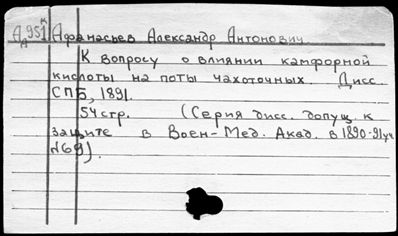 Ад951к Афанасьев Александр Антонович
К вопросу о влиянии камфорной
кислоты на поты чахоточных. Дисс.
СПБ, 1891.
54 стр. (Серия дисс. допущ. к
защите в Воен-Мед. Акад. в 1890-91 уч
№69).